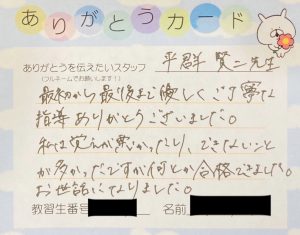 ありがとうカード
ありがとうを伝えたいスタッフ
(フルネームでお願いします!)
平群 賢二先生
最初から最後まで優しくご丁寧な
指導ありがとうございました。
私は覚えが悪かったり、できないこと
が多かったですが何とか合格できました。
お世話になりました。
教習生番号 名前